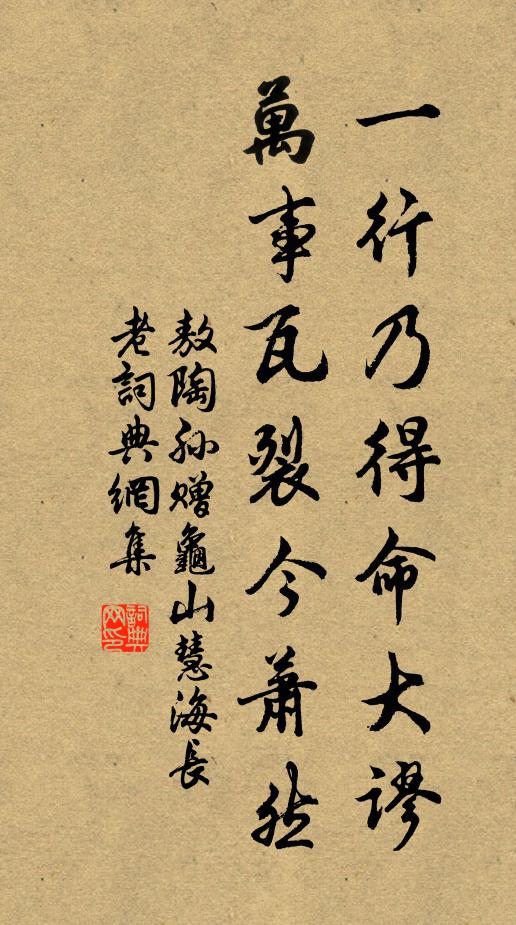 一行乃得命大謬
萬事瓦裂今蕭然
敖陶孙赠龜山慧海長
老詞典網集
詞典网印